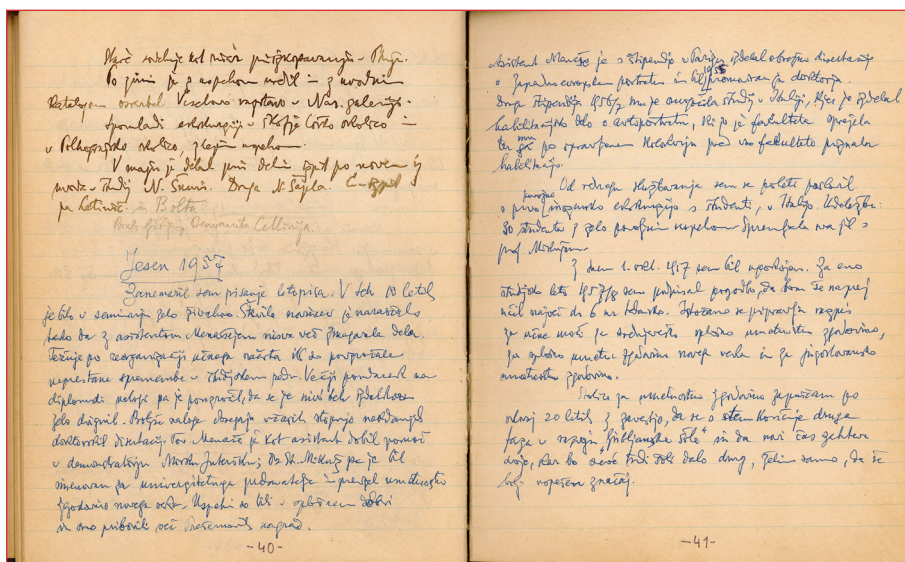 Po zimi je z uspehom vodil in z uvodnim
katalogom oskrbel Veselovo razstavo v Nar. galeriji.
Spomladi ekskurzija v Škofjo Loko okolico in
v Polhograjsko okolico, z lepim uspehom.
V maju je delal prvi delni izpit po novem iz
N. Šumi. Druga N. Šajla.
pa Letinić. in Bolta
Benvenuta Cellinija.
Jesen 1957
Zanemaril sem pisanje letopisa. V teh 10 letih
je bilo v seminarju zelo živahno. Število novincev je naraščalo
tako da z asistentom Menašejem nisva več zmagovala dela.
Težnje po reorganizaciji učnega načrta itd. so povzročale
neprestane spremembe v študijskem redu. Večji poudarek na
diplomski nalogi pa je povzročil, da se je nivo teh izdelkov
zelo dvignil. Boljše naloge dosegajo včasih stopnjo nekdanjih
doktorskih disertacij. Tov. Menaše je kot asistent dobil pomoč
v demonstratorju; Dr. St. Mikuž pa je bil
imenovan za univerzitetnega predavatelja in prevzel umetnostno
zgodovino novega veka. Uspehi so bili v splošnem dobri
in smo priborili več Prešernovih nagrad.
-40-
Asistent Menaše je s štipendijo v Parizu izdelal obsežno disertacijo
o zapadnoevropskem portretu in bil 1955 promoviran za doktorja.
Druga štipendija 1956/7 mu je omogočila študij v Italiji, kjer je izdelal
habilitacijsko delo o avtoportretu, ki jo je fakulteta sprejela
ter mu po opravljenem kolokviju pred vso fakulteto priznala
habilitacijo.
Od rednega službovanja sem se poleti poslovil
s prvo inozemsko ekskurzijo s študenti, v Italijo. Udeležba:
30 študentov z zelo povoljnim uspehom. Spremljala sva jih s
prof. Mikužem.
Z dnem 1. okt. 1957 sem bil upokojen. Za eno
študijsko leto 1957/8 sem podpisal pogodbo, da bom še naprej
učil največ do 6 ur tedensko. Istočasno se pripravlja razpis
za učne moči za srednjeveško splošno umetnostno zgodovino,
za splošno umetn. zgodovino novega veka in za jugoslovansko
umetnostno zgodovino.
Stolico za umetnostno zgodovino zapuščam po
skoraj 20 letih z zavestjo, da se s tem končuje druga
faza v razvoju "ljubljanske šole" in da novi čas zahteva
svoje, kar bo "naši" tudi šoli dalo drug, želim samo, da še
bolj uspešen značaj.
-41-